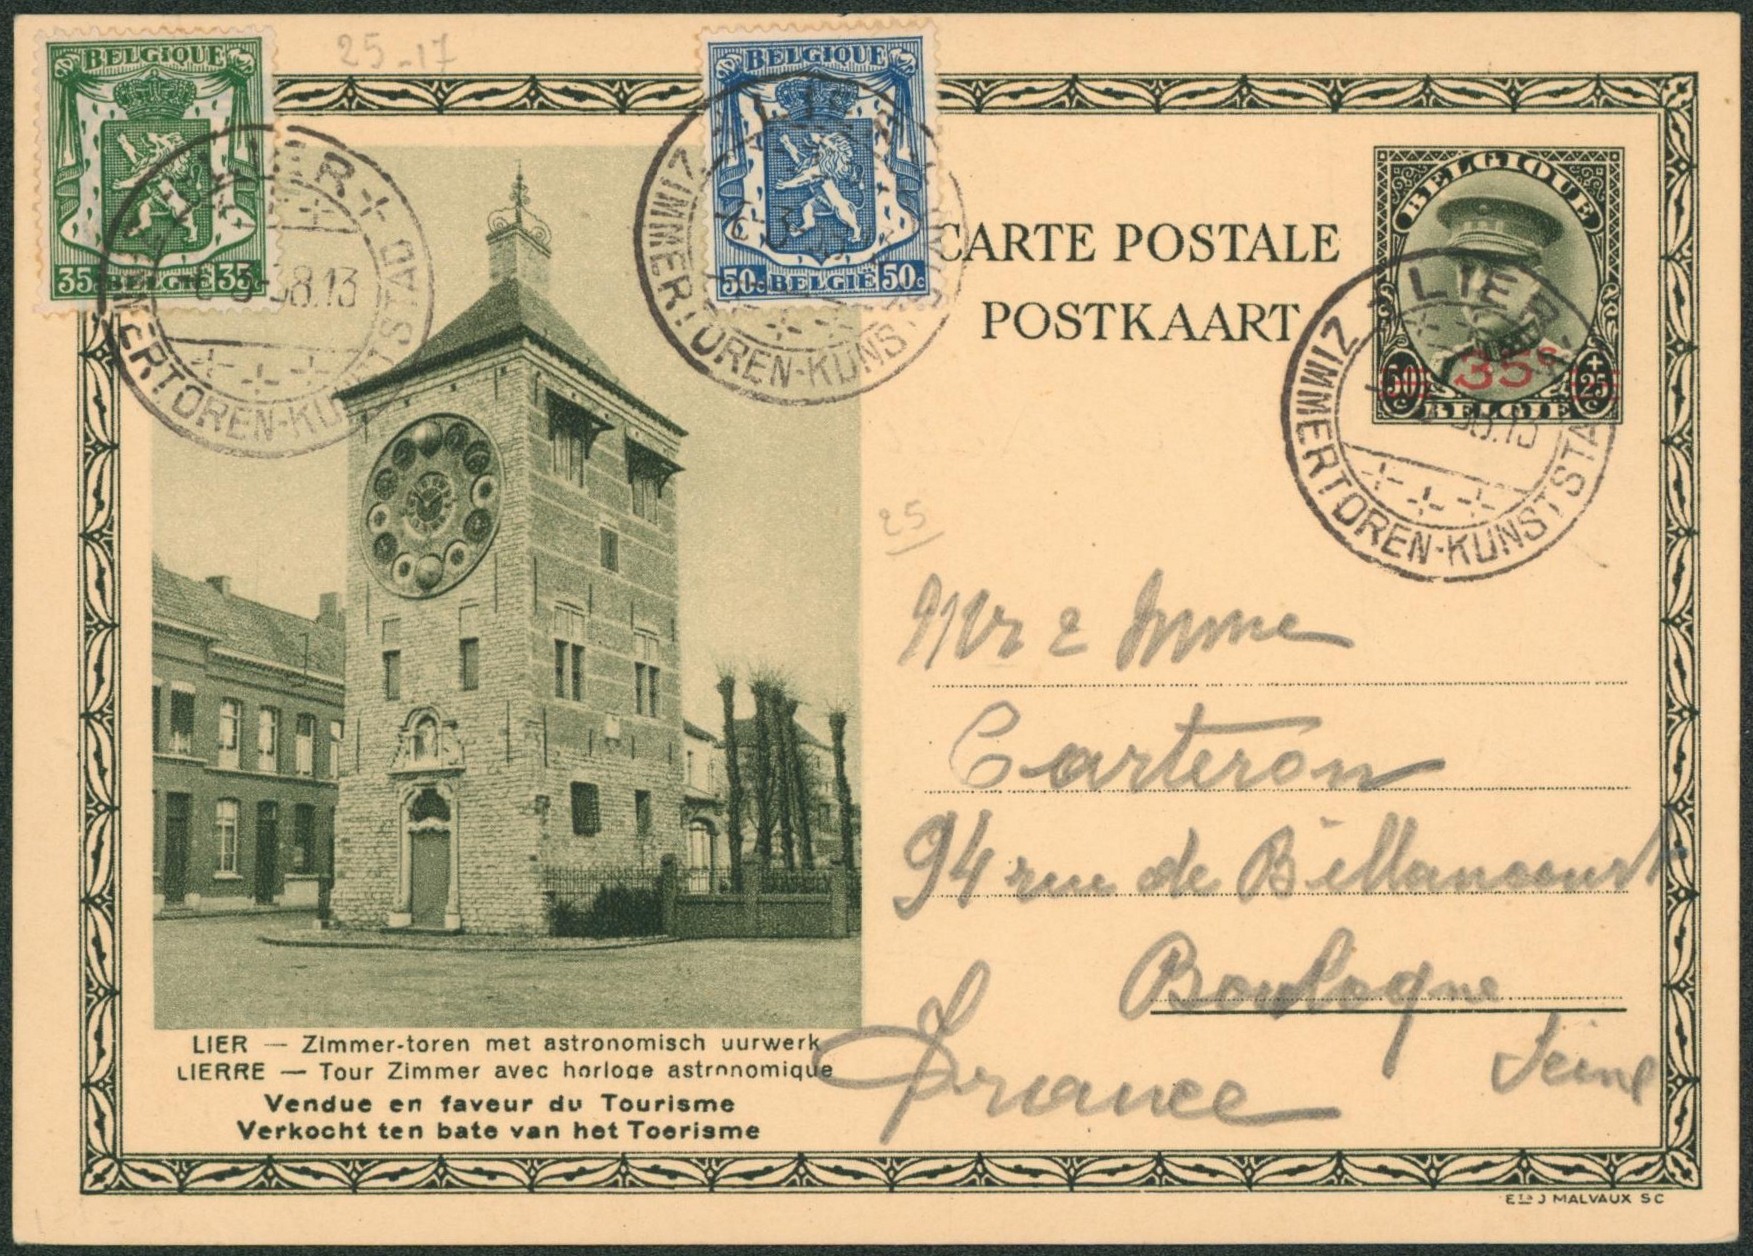 25-17
BELGIQUE
35c BELGIË 35c
BELGIQUE
50c BELGIË 50c
LIER
ZIMMERTOREN-KUNSTSTAD
38.13
LIER
ZIMMERTOREN-KUNSTSTAD
CARTE POSTALE
POSTKAART
BELGIQUE
35c
50 c
+ 25 c
BELGIE
LIER
ZIMMERTOREN-KUNSTSTAD
38.13
25
Mr & Mme
Carteron
94 rue de Billancourt
Boulogne
Seine
France
LIER — Zimmer-toren met astronomisch uurwerk
LIERRE — Tour Zimmer avec horloge astronomique
Vendue en faveur du Tourisme
Verkocht ten bate van het Toerisme
Ets J MALVAUX SC